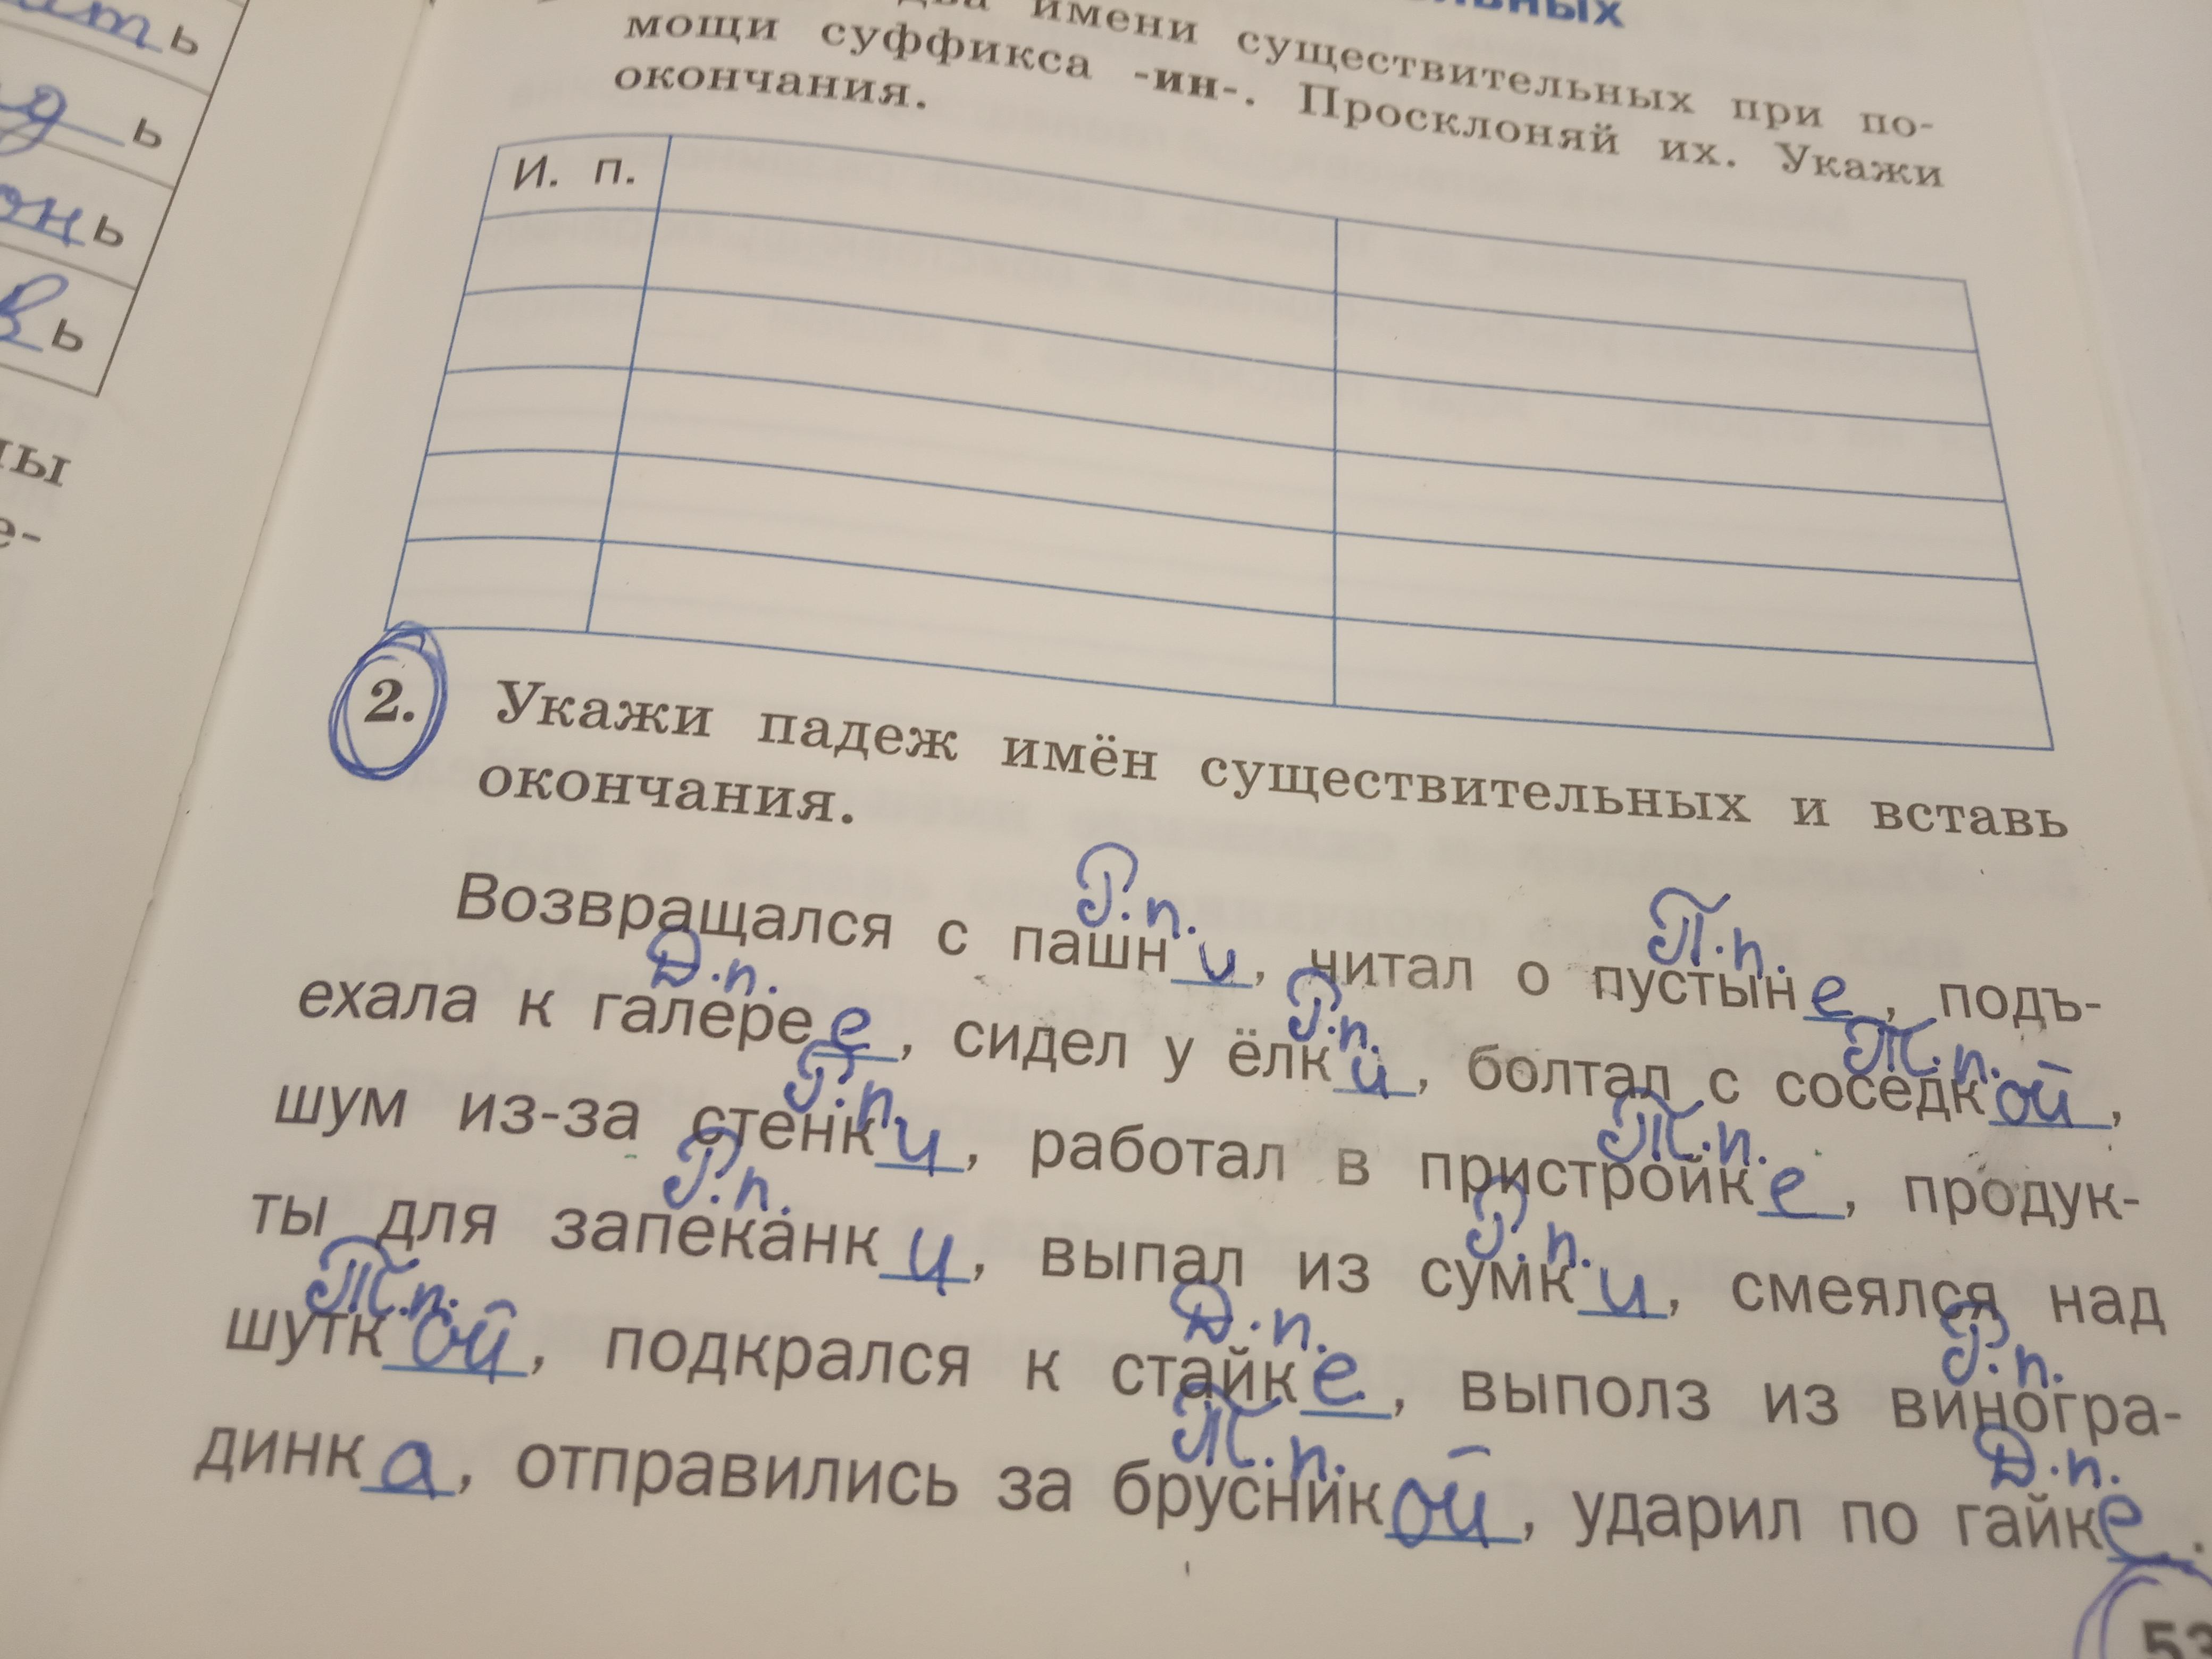 ь
ь
онь
вь
ны
е-
имени существительных при по-
мощи суффикса -ин-. Просклоняй их. Укажи
окончания.
И. п.
2. Укажи падеж имён существительных и вставь
окончания.
Р.п. П.п.
Возвращался с пашни, читал о пустыне, подъ-
Д.п. Р.п. Т.п.
ехала к галерее, сидел у ёлки, болтал с соседкой,
Р.п. П.п.
шум из-за стенки, работал в пристройке, продук-
Р.п. Р.п.
ты для запеканки, выпал из сумки, смеялся над
Т.п. Д.п. Р.п.
шуткой, подкрался к стайке, выполз из виногра-
Т.п. Д.п.
динка, отправились за брусникой, ударил по гайке.
53